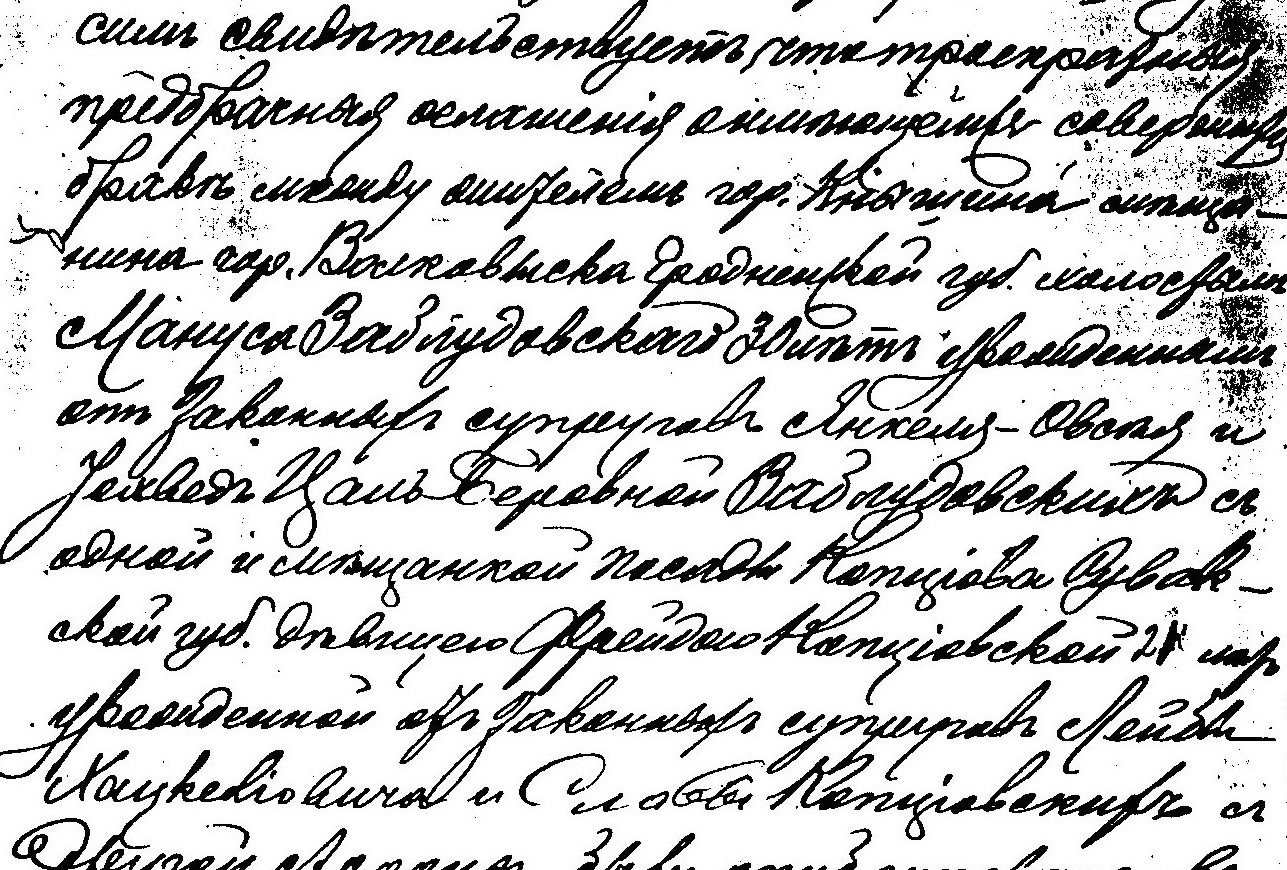 симъ свидѣтельствуетъ, что троекратныя
предбрачныя оглашенія о имѣющемъ соверш
бракѣ между жителемъ гор. Книшина мѣща-
нина гор. Волковыска Гродненской губ. холостымъ
Мануса Заблудовскаго 30 лѣтъ урожденнымъ
отъ законныхъ супруговъ Янкеля-Овсея и
Іохведъ Цаль-Беровной Заблудовскихъ съ
одной и мѣщанкой посада Копціова Сувалк-
ской губ. дѣвицею Фрейдою Копціовской 21 лѣтъ
урожденной отъ законныхъ супруговъ Лейбы
Хацкеліовича и Слобы Копціовскихъ съ